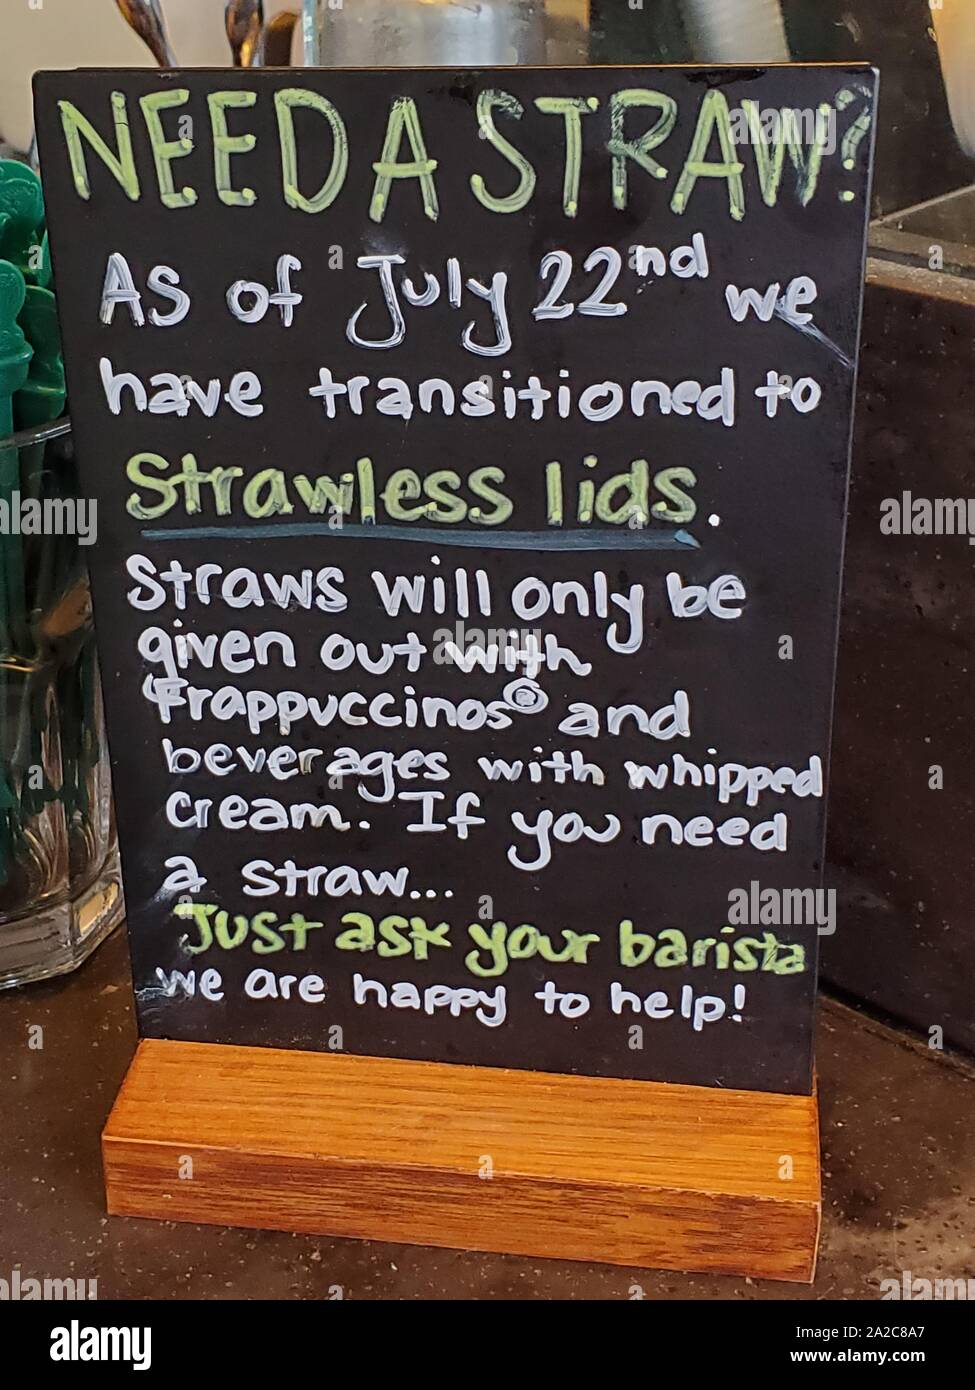 NEED A STRAW?
As of July 22nd we
have transitioned to
Strawless lids.
Straws will only be
given out with
Frappuccinos® and
beverages with whipped
cream. If you need
a straw...
Just ask your barista
we are happy to help!
alamy
Image ID: 2A2C8A7
www.alamy.com